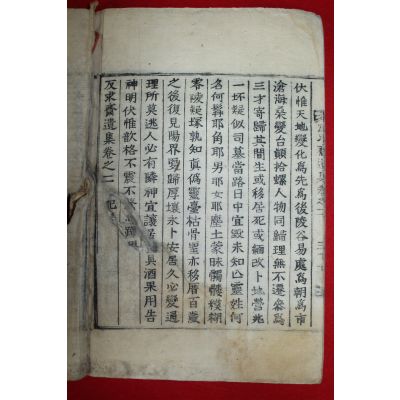 伏惟天地變化爲先爲後陵谷易處爲朝爲市
滄海桑變台顚拾螺人物同歸理無不還參爲
三才寄歸其間生或移居死或緬改卜地營兆
一坏疑似司墓當路日中宜毁未知亾靈姓何
名何髥耶角耶男耶女耶塵土蒙昧髑髏糢糊
零陵疑塚孰知眞僞靈臺枯骨里亦移厝百歲
之後復見陽界易歸厚壤永卜安居久必變通
理所莫逃人必有隣神宜讓居具酒果用告
神明伏惟歆格不震不
反求齋遺集卷之一